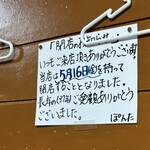 「閉店のお知らせ」
いつもご来店頂きありがとうございます
当店は5月16日金を持って
閉店することとなりました。
長年のご愛顧ありがとう
ございました。
ぽんた